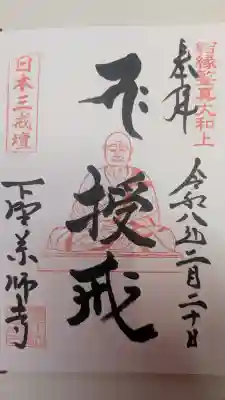 宿縁鑒真大和上
奉拝
令和八年二月二十日
授戒
日本三戒壇
下野薬師寺